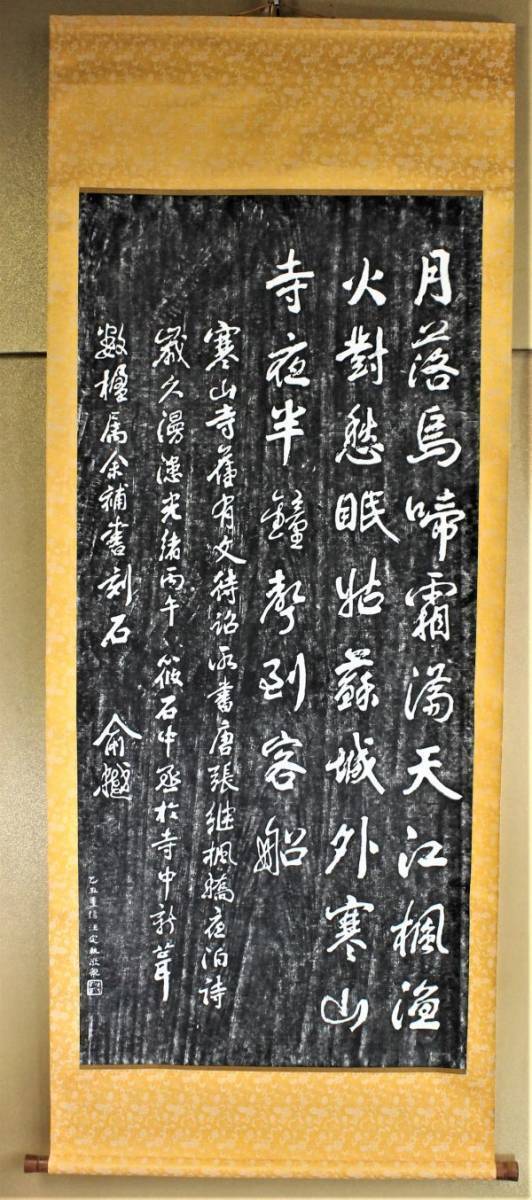 月落烏啼霜满天江楓渔
火對愁眠姑蘇城外寒山
寺夜半鐘聲到客船
寒山寺舊有文待詔所書唐張继楓橋夜泊詩
歲久漫漶光緒丙午筱石中丞於寺中新葺
數楹属余補書刻石 俞樾